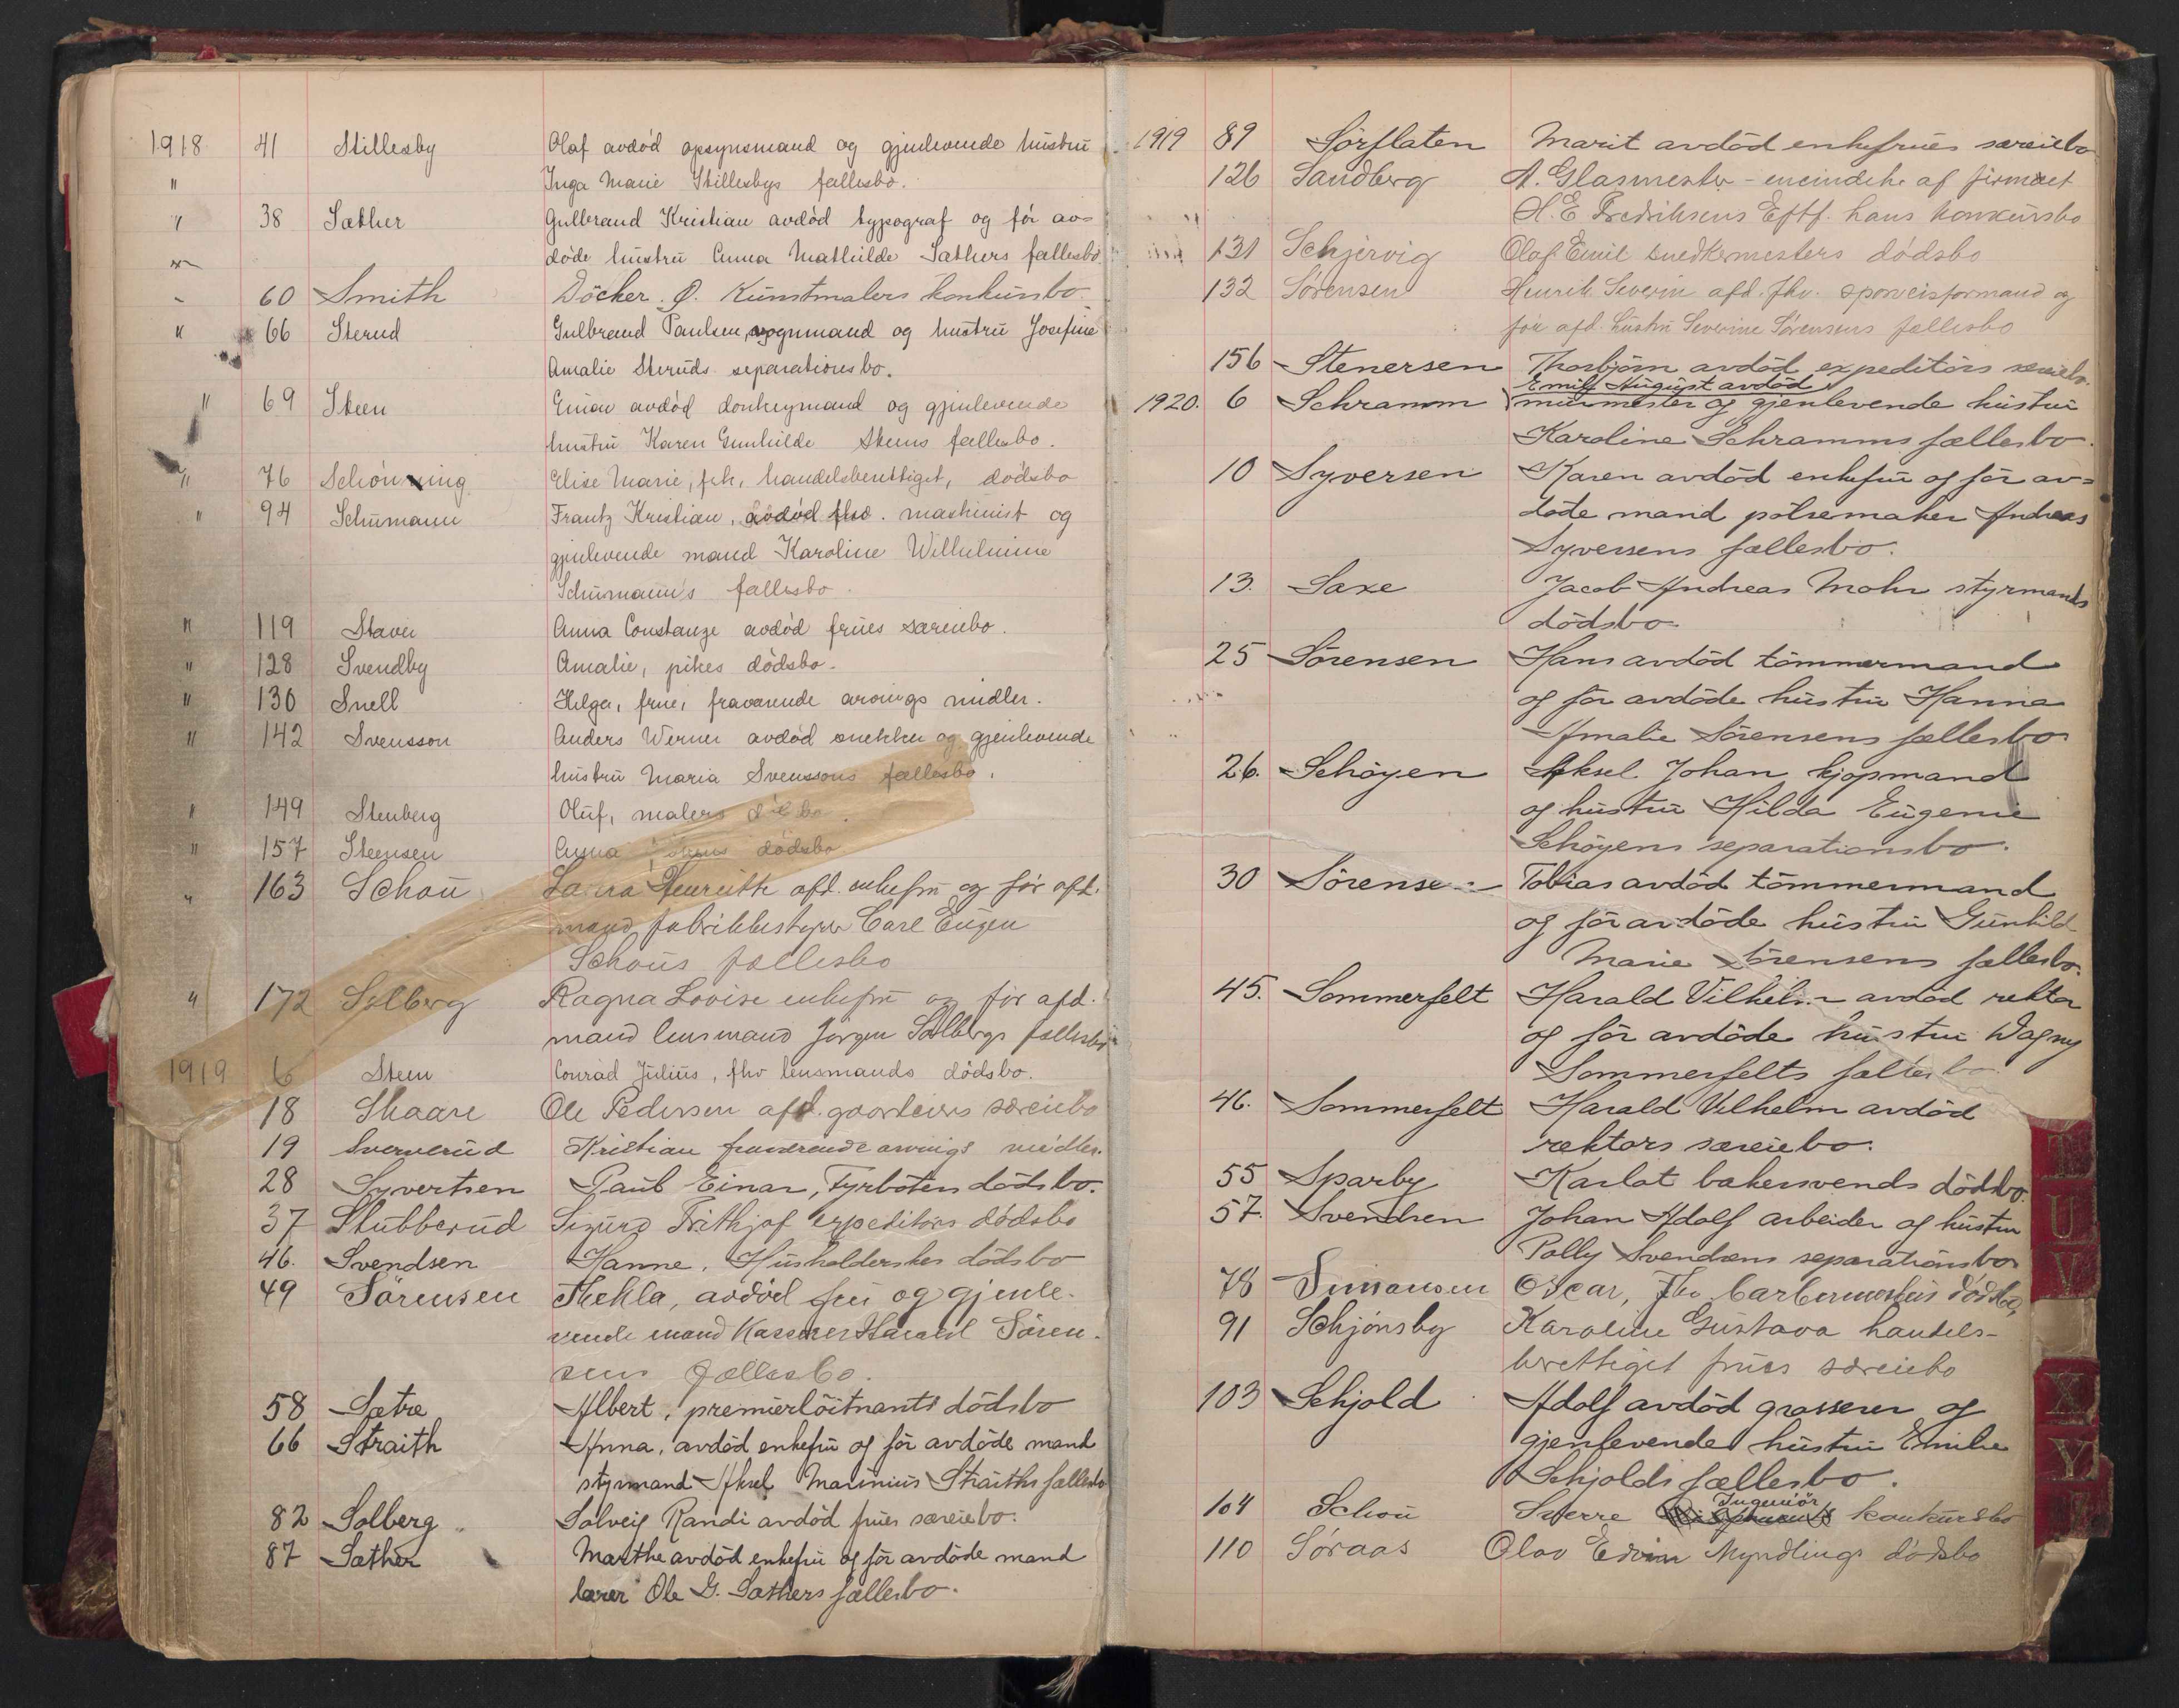 1918 41 Stillesby Olaf avdød opsynsmand og gjenlevende hustru
" Inga Marie Stillesbys fællesbo.
" 38 Sæther Gulbrand Kristian avdød typograf og før av=
døde hustru Anna Mathilde Sæthers fællesbo
60 Smith Döcker. O. Kunstmalers konkursbo
" 66 Sterud Gulbrand Paulsen, vognmand og hustru Josefine
Amalie Steruds separationsbo.
" 69 Steen Einar avdød donkeymand og gjenlevende
hustru Karen Gunhilde Steens fællesbo.
" 76 Schönning Elise Marie, frk, handelsberettiget, dødsbo
" 94 Schumann Frantz Kristian, avdød fhv. maskinist og
gjenlevende mand Karoline Wilhelmine
Schumann's fællesbo.
" 119 Staver Anna Constanze avdød frues særeiebo.
" 128 Svendby Amalie, pikes dødsbo.
" 130 Snell Helga, frue, fraværende arvings midler.
" 142 Svensson Anders Werner avdød snekker og gjenlevende
hustru Maria Svenssons fællesbo.
" 149 Stenberg Oluf, malers
" 157 Steensen Anna dødsbo
" 163 Schou Laura Henriette afd. enkefru og før afd.
mand fabrikbestyrer Carl Eugen
Schous fællesbo
" 172 Solberg Ragna Lovise enkefru og før afd.
mand lensmand Jørgen Solbergs fællesbo
1919 6 Steen Conrad Julius, fhv lensmands dødsbo.
18 Skaare Ole Pedersen afd. gaardeiers særeiebo
19 Sververud Kristian fraværende arvings midler.
28 Syvertsen Paul Einar, Fyrbøters dødsbo.
37 Stubberud Sigurd Frithjof expeditørs dødsbo
46. Svendsen Hanne, Husholderskes dødsbo
49 Sörensen Thekla, avdöd fru og gjenle-
vende mand Kasserer Harald Sören-
sens fællesbo.
58 Sætre Albert, premierlöitnants dödsbo
66 Straith Anna, avdöd enkefru og för avdöde mand
styrmand Aksel Marinius Straiths fællesbo
82 Solberg Solveig Randi avdöd frues særeiebo.
87 Sæther Marthe avdöd enkefru og för avdöde mand
lærer Ole G. Sæthers fællesbo.
1919 89 Sørflaten Marit avdöd enkefrues særeiebo
126 Sandberg A. Glasmester - eneindeh. af firmaet
H. E Fredriksens Eftf. hans konkursbo
131 Schjervig Olaf Emil snedkermesters dødsbo
132 Sørensen Henrik Severin afd. fhv. sporveisformand og
før afd. hustru Severine Sørensens fællesbo
156 Stenersen Thorbjörn avdöd expeditörs særeiebo.
Emil August avdöd
1920. 6 Schramm murmester og gjenlevende hustru
Karoline Schramms fællesbo.
10 Syversen Karen avdöd enkefru og för av=
döde mand pölsemaker Andreas
Syversens fællesbo.
13. Saxe Jacob Andreas Mohr styrmands
dödsbo.
25 Sörensen Hans avdöd tömmermand
og för avdöde hustru Hanna
Amalie Sörensens fællesbo
26. Schöyen Aksel Johan kjöpmand
og hustru Hilda Eugenie
Schöyens separationsbo.
30 Sörensen Tobias avdöd tömmermand
og för avdöde hustru Gunhild
Marie Sörensens fællesbo.
45. Sommerfelt Harald Vilhelm avdöd rektor
og för avdöde hustru Dagny
Sommerfelts fællesbo
46. Sommerfelt Harald Vilhelm avdöd
rektors særeiebo.
55 Sparby Karlot bakersvends dödsbo.
57. Svendsen Johan Adolf arbeider og hustru
Polly Svendsens separationsbo
78 Simonsen Oscar, Fhv barbermesters dödsbo,
91 Schjønsby Karoline Gustava handels-
berettiget frues særeiebo
103 Schjold Adolf avdöd grosserer og
gjenlevende hustru Emilie
Schjolds fællesbo.
Ingeniör
104 Schou Sverre konkursbo
110 Søraas Olav Edvin Myndlings dødsbo
T
U
V
X
Y